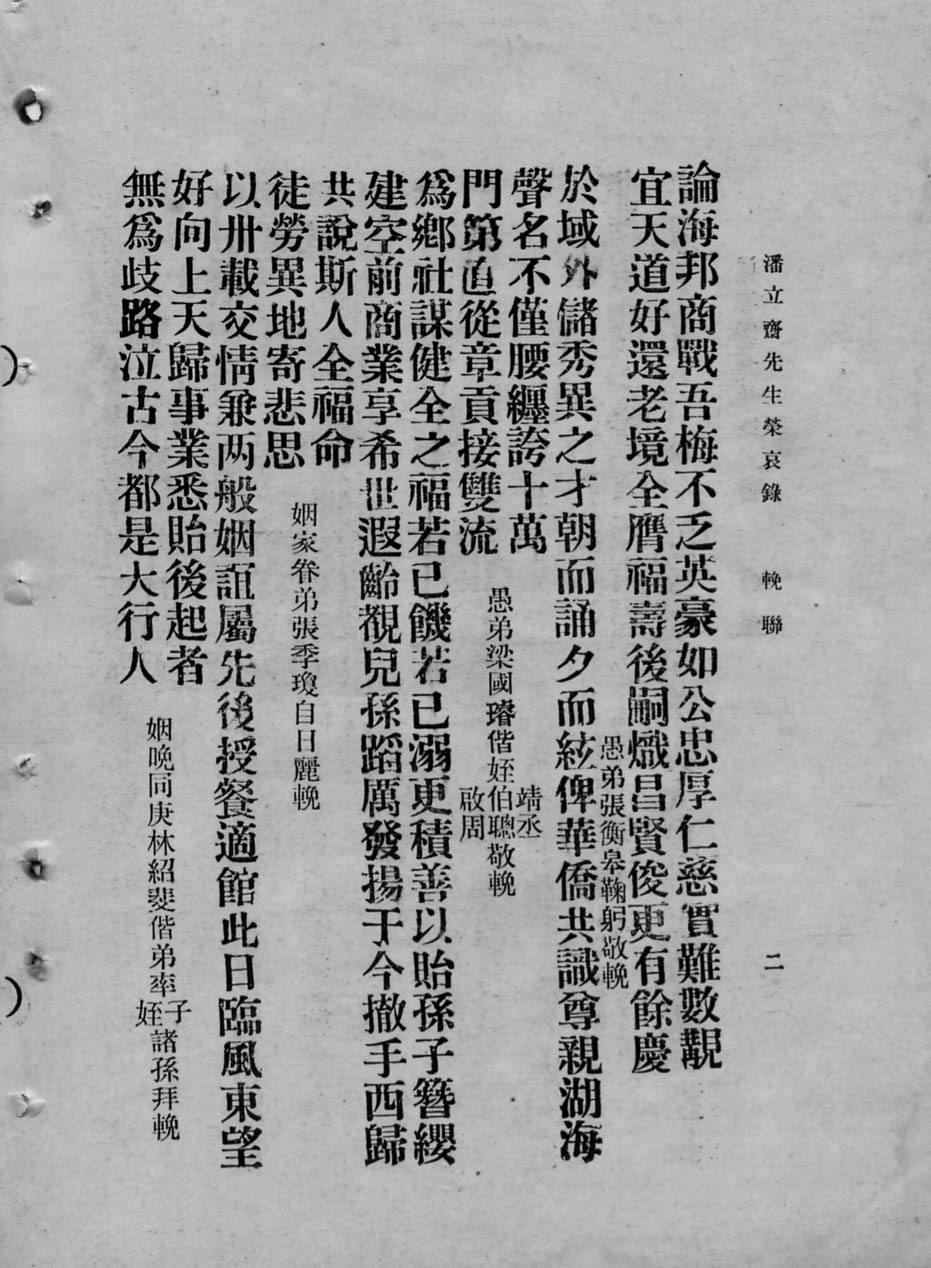 潘立齋先生榮哀錄 輓聯 二
論海邦商戰吾梅不乏英豪如公忠厚仁慈實難數覯
宜天道好還老境全膺福壽後嗣熾昌賢俊更有餘慶
愚弟張衡皋鞠躬敬輓
於域外儲秀異之才朝而誦夕而絃俾華僑共識尊親湖海
聲名不僅腰纏誇十萬
門第直從章貢接雙流
愚弟梁國璿偕姪伯聰靖丞啟周敬輓
為鄉社謀健全之福若已饑若已溺更積善以貽孫子簪纓
建空前商業享希世遐齡覩兒孫蹈厲發揚于今撤手西歸
共說斯人全福命
徒勞異地寄悲思
姻家眷弟張季瓊自日麗輓
以卅載交情兼两般姻誼屬先後授餐適館此日臨風東望
好向上天歸事業悉貽後起者
無為歧路泣古今都是大行人
姻晚同庚林紹斐偕弟率子姪諸孫拜輓